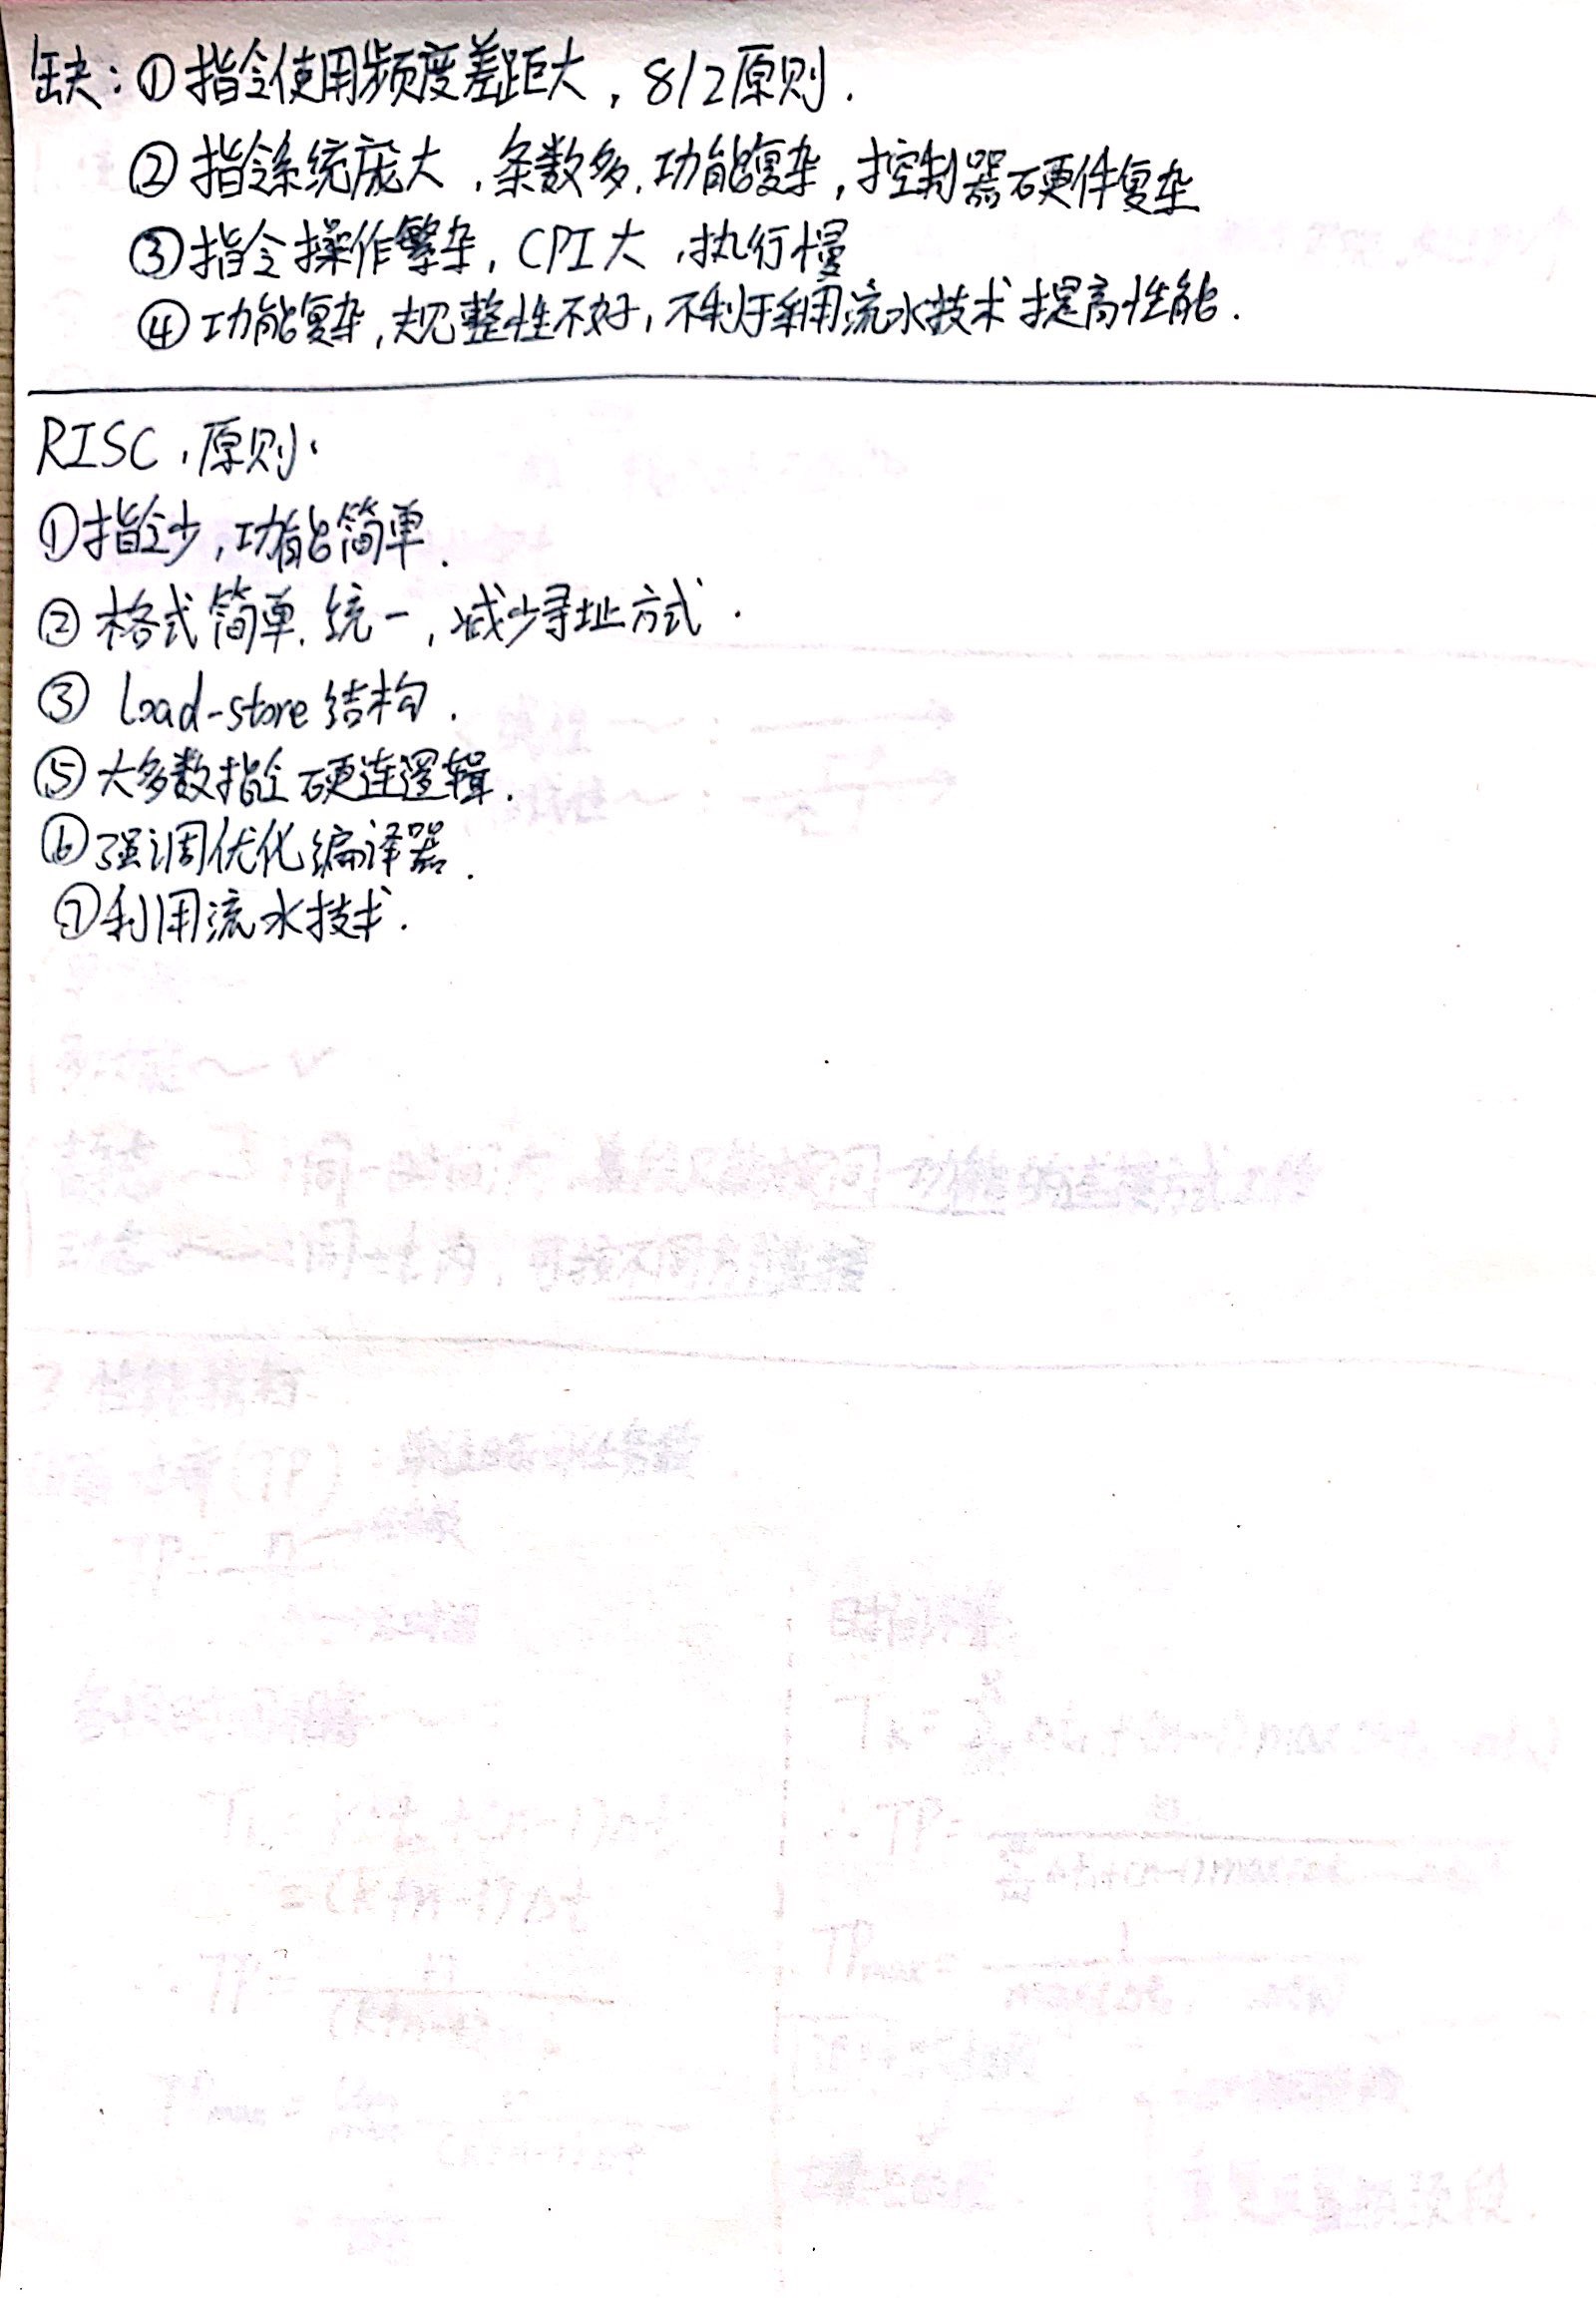 缺：①指令使用频度差距大，8/2原则．
②指令系统庞大，条数多，功能复杂，控制器硬件复杂
③指令操作繁杂，CPI大，执行慢
④功能复杂，规整性不好，不利于利用流水技术提高性能．
RISC，原则：
①指令少，功能简单．
②格式简单，统一，减少寻址方式．
③ load-store结构．
⑤大多数指令硬连逻辑．
⑥强调优化编译器．
⑦利用流水技术．